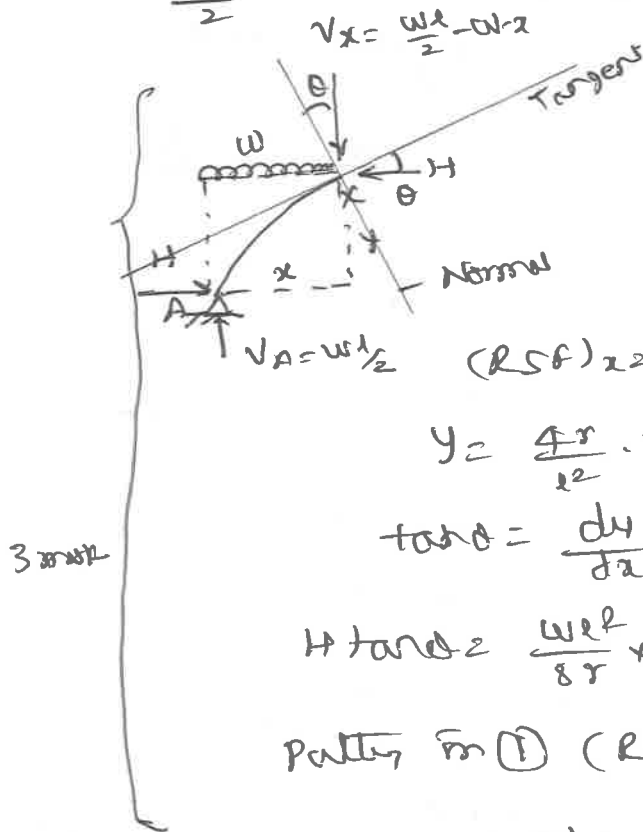 2
Vx = wl/2 - w·x
θ
Tangent
w
H
θ
x
H
x
Normal
A
VA = wl/2 (RSF)x =
y = 4r/l² ·
3 mark
tanθ = dy/dx
H tanθ = wl²/8r ×
Putting in ① (R